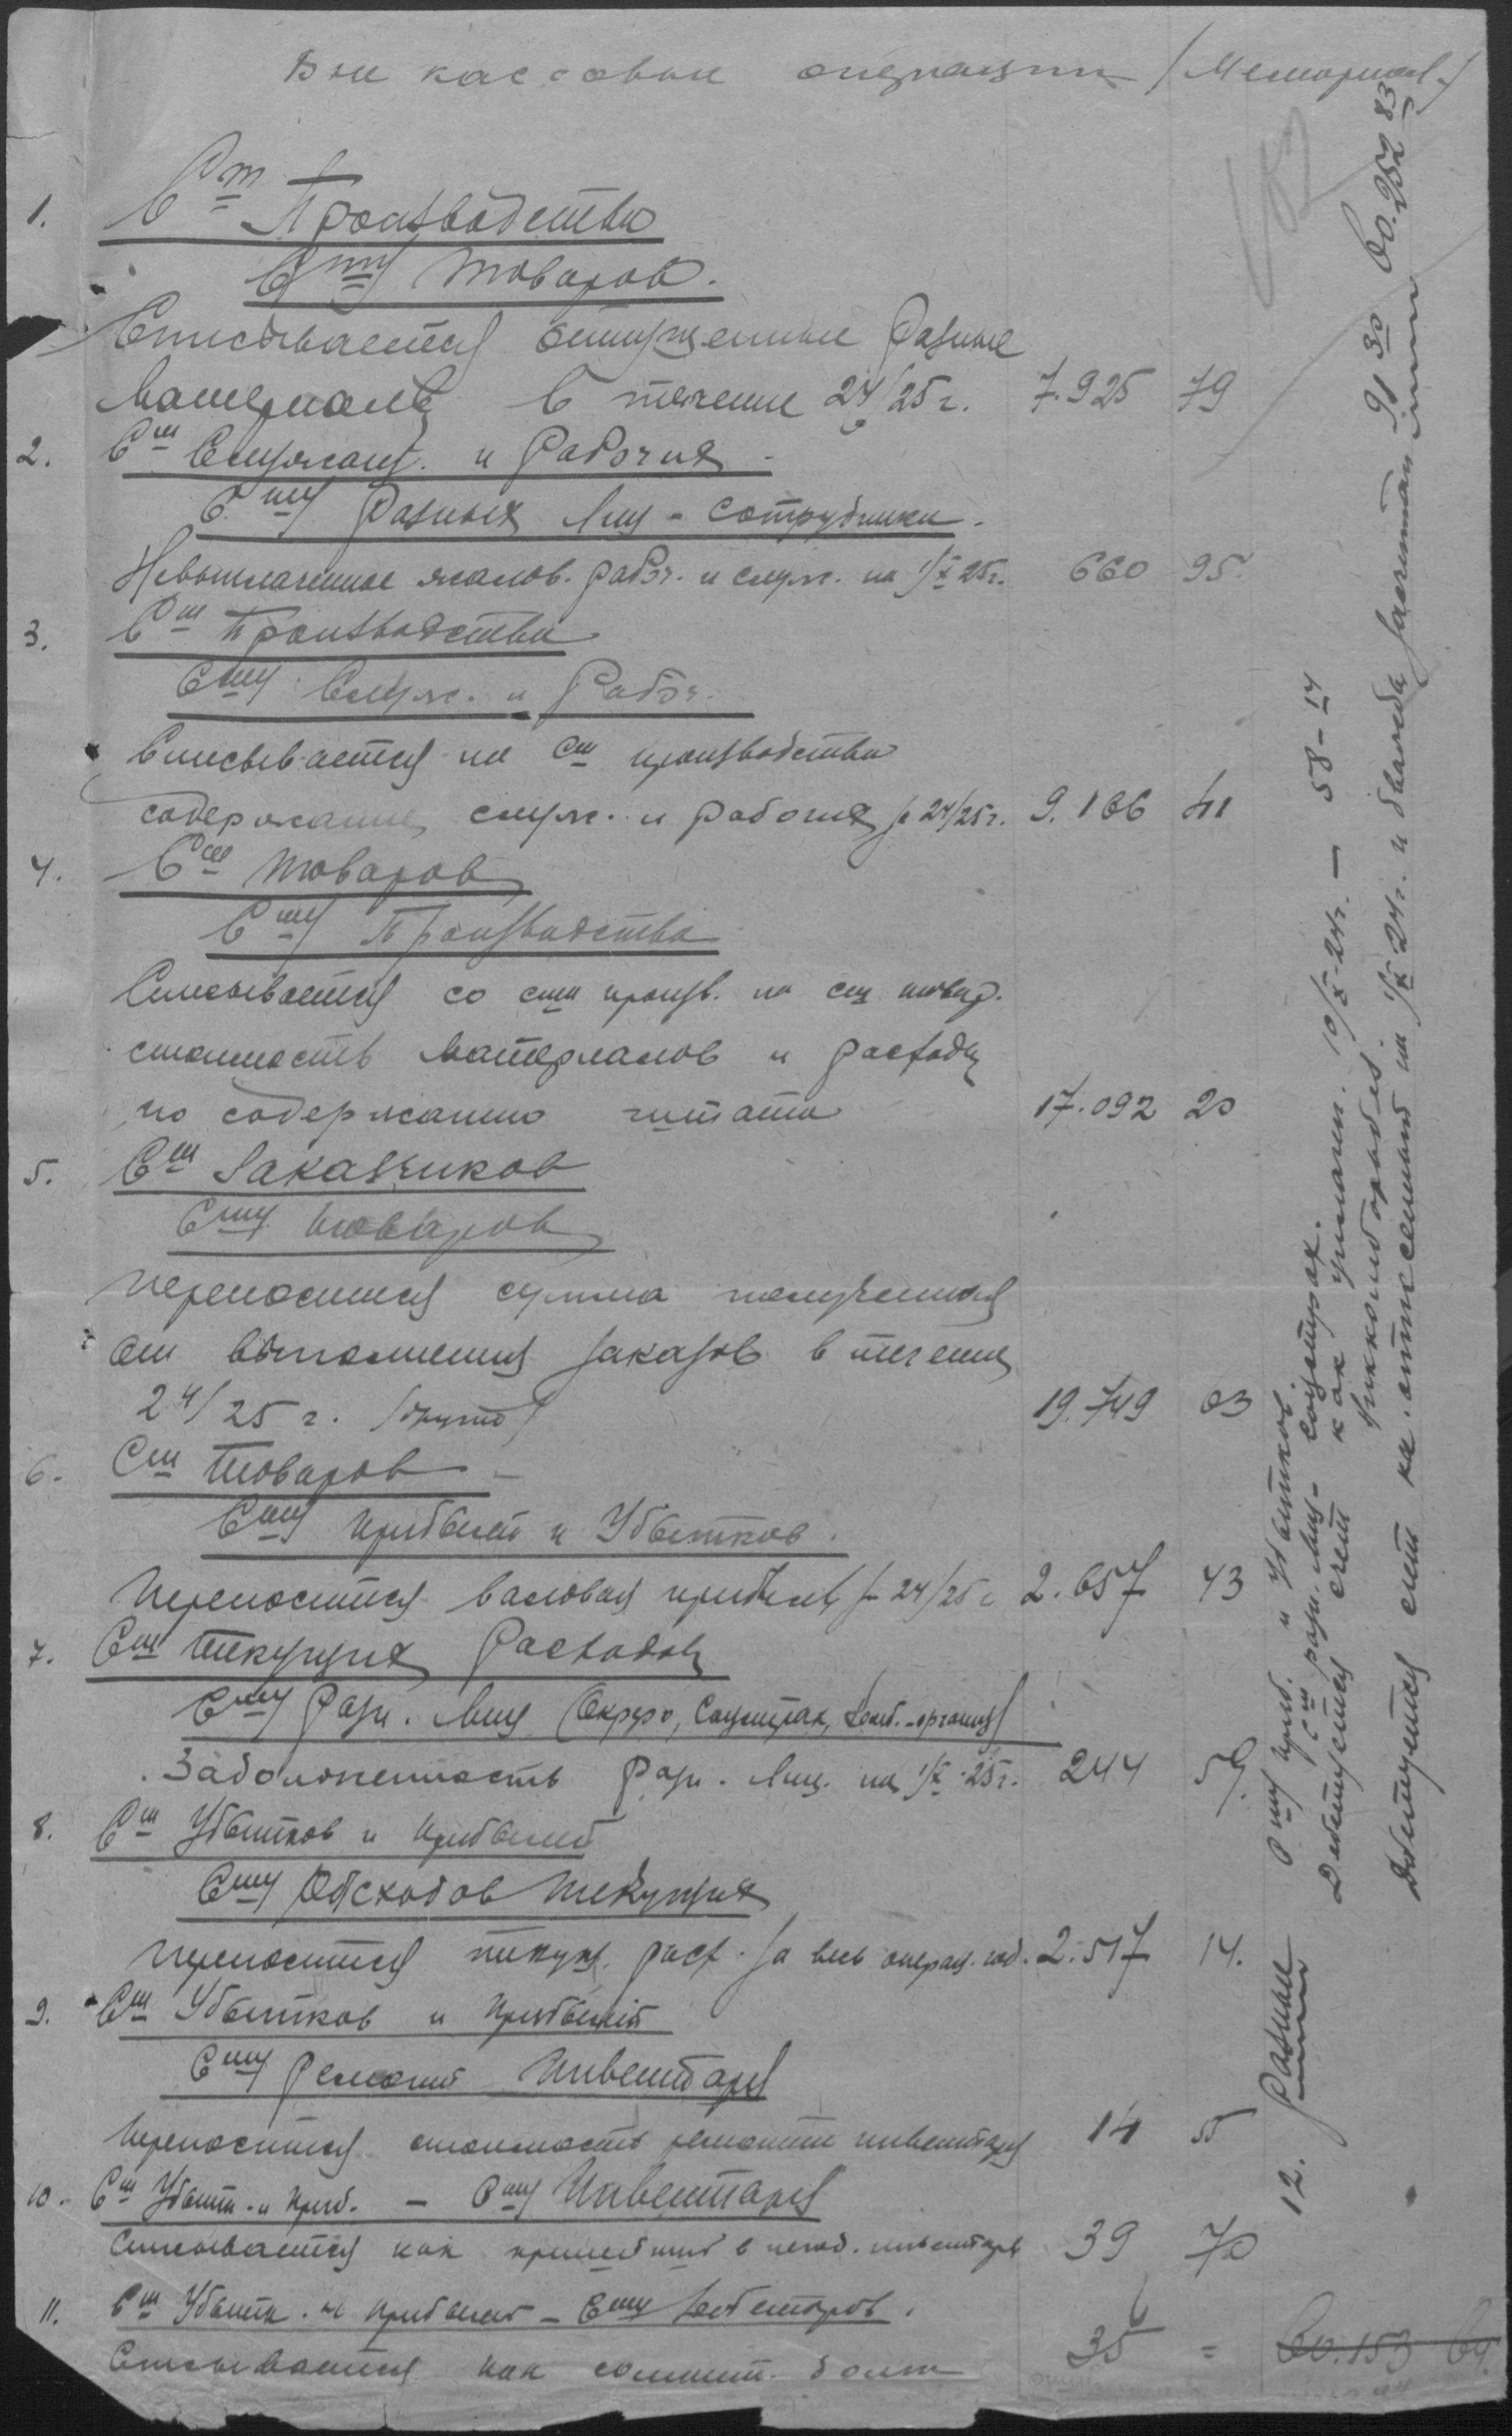 Вне кассовые операции (Мемориал.)
1. Ст Производства
Сту Товаров.
Списывается отпущенные разные
материалы в течение 24/25 г. 7.925 79
2. Ст Служащ. и Рабочих
Сту Разных Лиц - сотрудники.
Невыплаченное жалов. рабоч. и служ. на 1/X 25 г. 660 95
3. Ст Производства
Сту Служ. и Рабоч.
Списывается на Ст производства
содержание служ. и рабочих за 24/25 г. 9.166 41
4. Сч Товаров
Сту Производства
Списывается со сч произв. на сч товар.
стоимость материалов и расходы
по содержанию штата 17.092 20
5. Ст Заказчиков
Сту Товаров
переносится сумма полученная
от выполнения заказов в течение
24/25 г. (брутто) 19.749 63
6. Сч Товаров
Сту Прибылей и Убытков.
Переносится валовая прибыль за 24/25 г. 2.657 43
7. Сч Текущих Расходов
Сту Разн. Лиц (Окрфо, Соцстрах, организ)
Задолженность Разн. Лиц. на 1/X-25 г. 244 59.
8. Сч Убытков и Прибылей
Сту Расходов Текущих
переносится текущ. расх. за весь операц. год. 2.517 14.
9. Сч Убытков и Прибылей
Сту Ремонт Инвентаря
Переносится стоимость ремонта инвентаря 14 55
10. Сч Убытк. и Приб. - Сту Инвентаря
Списывается как пришедший в негод. инвентарь 39 70
11. Сч Убытк. и Прибылей - Сту Дебиторов.
Списывается как сомнит. долг 35 =
60.153 64.
12. Разные
Сту Приб. и Убытков.
Сч разн. Лиц - Соцстрах.
Дебетуется счет как уплачен. 10/X-24 г. — 58-14
Дебетуется счет как отнесенный на 1/X 24 г. и 91 30
60.252 83